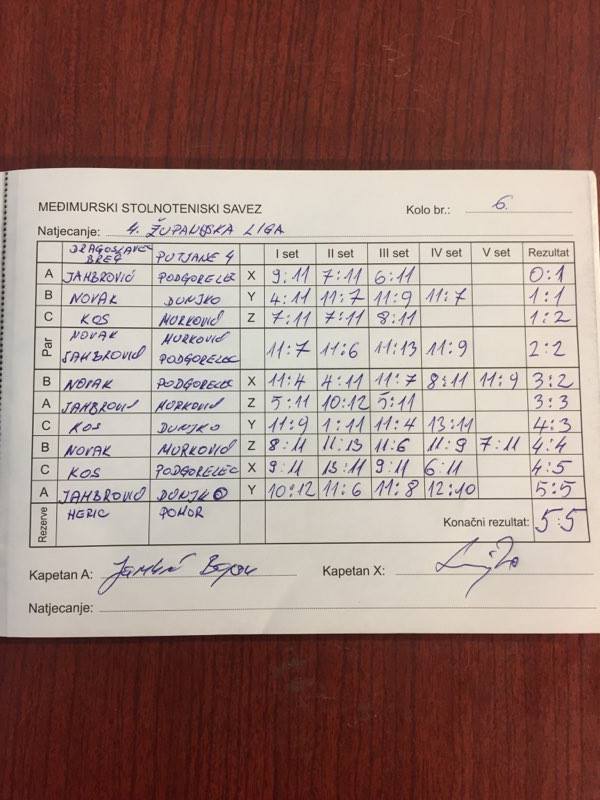 MEĐIMURSKI STOLNOTENISKI SAVEZ Kolo br.: 6.
Natjecanje: 4. ŽUPANIJSKA LIGA
DRAGOSLAVEC BREG PUTJANE 4 I set II set III set IV set V set Rezultat
A JAMBROVIĆ PODGORELEC X 9:11 7:11 6:11 0:1
B NOVAK DUNJKO Y 4:11 11:7 11:9 11:7 1:1
C KOS MURKOVIĆ Z 7:11 7:11 8:11 1:2
Par NOVAK JAMBROVIĆ MURKOVIĆ PODGORELEC 11:7 11:6 11:13 11:9 2:2
B NOVAK PODGORELEC X 11:4 4:11 11:7 8:11 11:9 3:2
A JAMBROVIĆ MURKOVIĆ Z 5:11 10:12 5:11 3:3
C KOS DUNJKO Y 11:9 1:11 11:4 13:11 4:3
B NOVAK MURKOVIĆ Z 8:11 11:13 11:6 11:9 7:11 4:4
C KOS PODGORELEC X 9:11 13:11 9:11 6:11 4:5
A JAMBROVIĆ DUNJKO Y 10:12 11:6 11:8 12:10 5:5
Rezerve HERIC POMOR Konačni rezultat: 5:5
Kapetan A: Kapetan X:
Natjecanje: